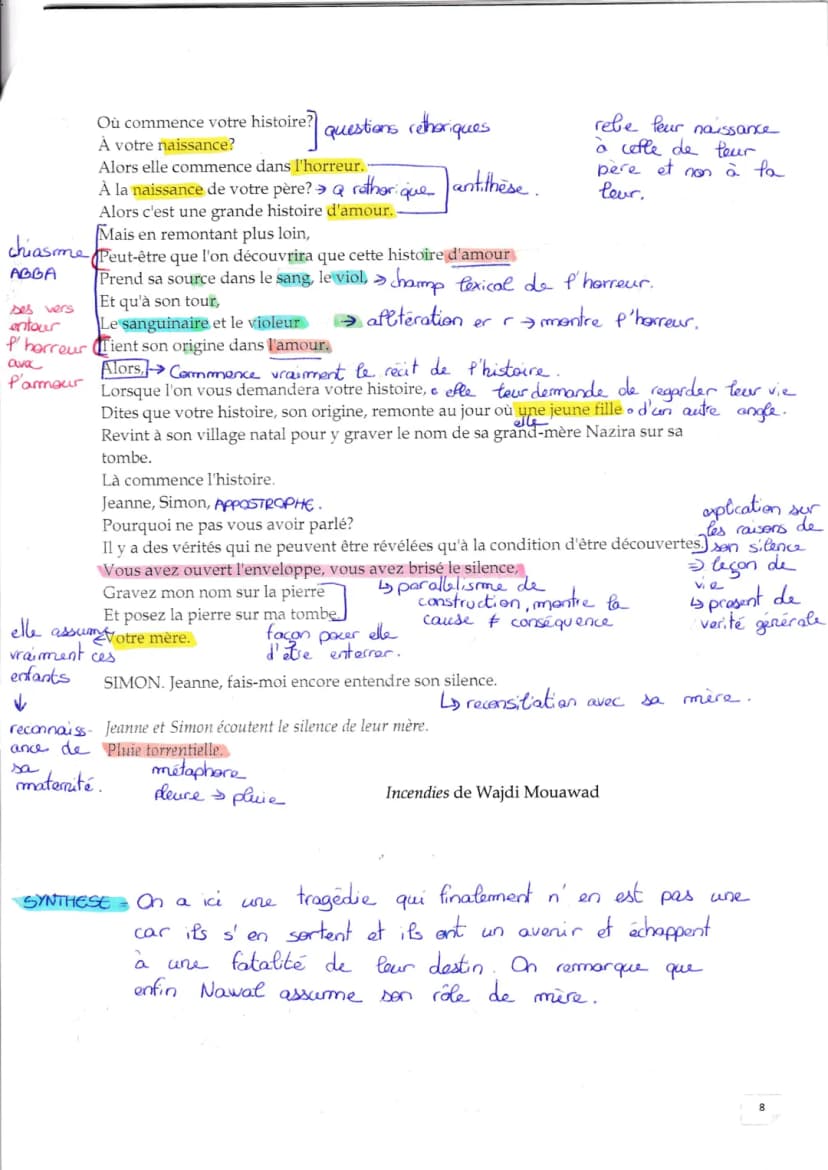 Où commence votre histoire? questions rethoriques
À votre naissance?
Alors elle commence dans l'horreur.
À la naissance de votre père? → Q réthorique antithèse.
Alors c'est une grande histoire d'amour.
relie leur naissance
à celle de leur
père et non à la
leur.
Mais en remontant plus loin,
Peut-être que l'on découvrira que cette histoire d'amour
Prend sa source dans le sang, le viol, → champ lexical de l'horreur.
Et qu'à son tour,
Le sanguinaire et le violeur → allitération er r → montre l'horreur.
Tient son origine dans l'amour.
chiasme
ABBA
ses vers
entour
l'horreur
avec
l'amour
Alors, → Commence vraiment le récit de l'histoire.
Lorsque l'on vous demandera votre histoire, • elle leur demande de regarder leur vie
Dites que votre histoire, son origine, remonte au jour où une jeune fille • d'un autre angle.
elle
Revint à son village natal pour y graver le nom de sa grand-mère Nazira sur sa
tombe.
Là commence l'histoire.
Jeanne, Simon, APPOSTROPHE.
Pourquoi ne pas vous avoir parlé?
Il y a des vérités qui ne peuvent être révélées qu'à la condition d'être découvertes.
explication sur
les raisons de
son silence
⇒ leçon de
vie
↳ présent de
vérité générale
Vous avez ouvert l'enveloppe, vous avez brisé le silence,
↳ parallelisme de
construction, montre la
cause ≠ conséquence
Gravez mon nom sur la pierre
Et posez la pierre sur ma tombe.
façon pour elle
d'être enterrer.
Votre mère.
elle assume
vraiment ces
enfants
↓
reconnaiss-
ance de
sa
maternité.
SIMON. Jeanne, fais-moi encore entendre son silence.
↳ reconsiliation avec sa mère.
Jeanne et Simon écoutent le silence de leur mère.
Pluie torrentielle.
métaphore
pleure → pluie
Incendies de Wajdi Mouawad
SYNTHESE = On a ici une tragédie qui finalement n'en est pas une
car ils s'en sortent et ils ont un avenir et échappent
à une fatalité de leur destin. On remarque que
enfin Nawal assume son rôle de mère.
8